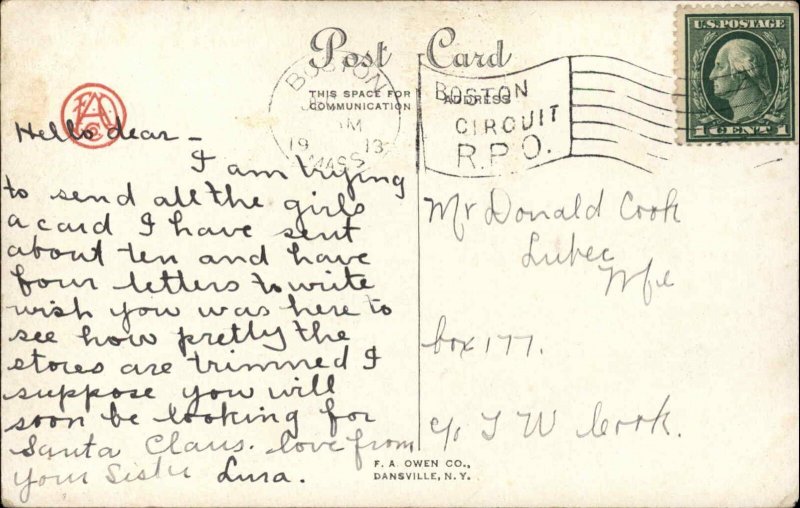 Post Card
THIS SPACE FOR
COMMUNICATION
ADDRESS
BOSTON
19 13
MASS
BOSTON
CIRCUIT
R.P.O.
U.S. POSTAGE
1 CENT 1
Hello dear –
I am trying
to send all the girls
a card I have sent
about ten and have
four letters to write
wish you was here to
see how pretty the
stores are trimmed I
suppose you will
soon be looking for
Santa Claus. love from
your Sister Lura.
Mr Donald Cook
Lubec
Me
box 177.
c/o T W Cook.
F. A. OWEN CO.,
DANSVILLE, N.Y.